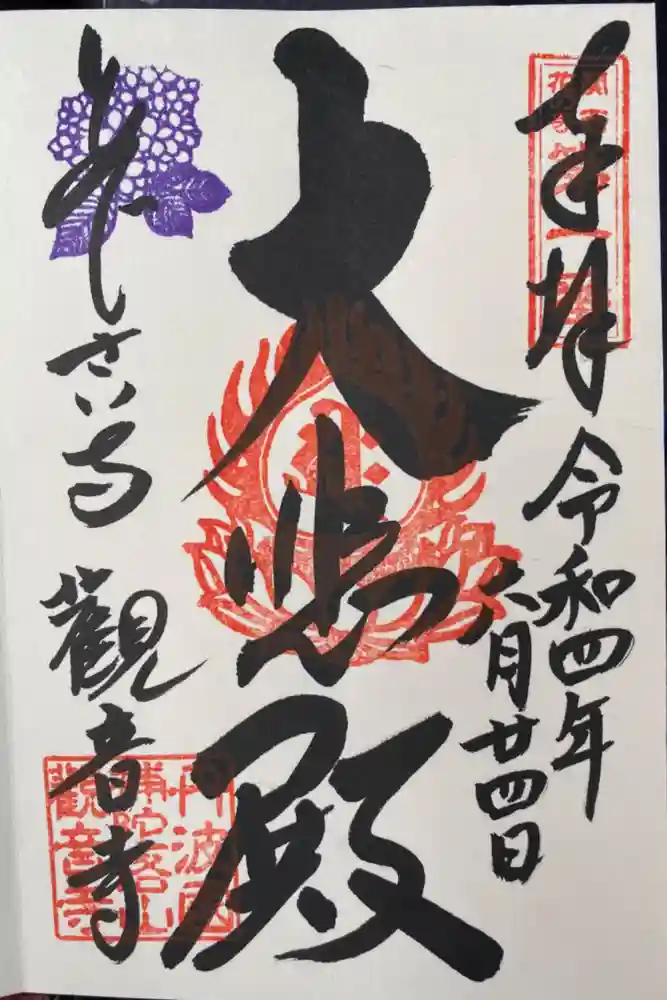 奉拝
令和四年
六月廿四日
大悲殿
あじさい寺
觀音寺
丹波国
補陀落山
観音寺